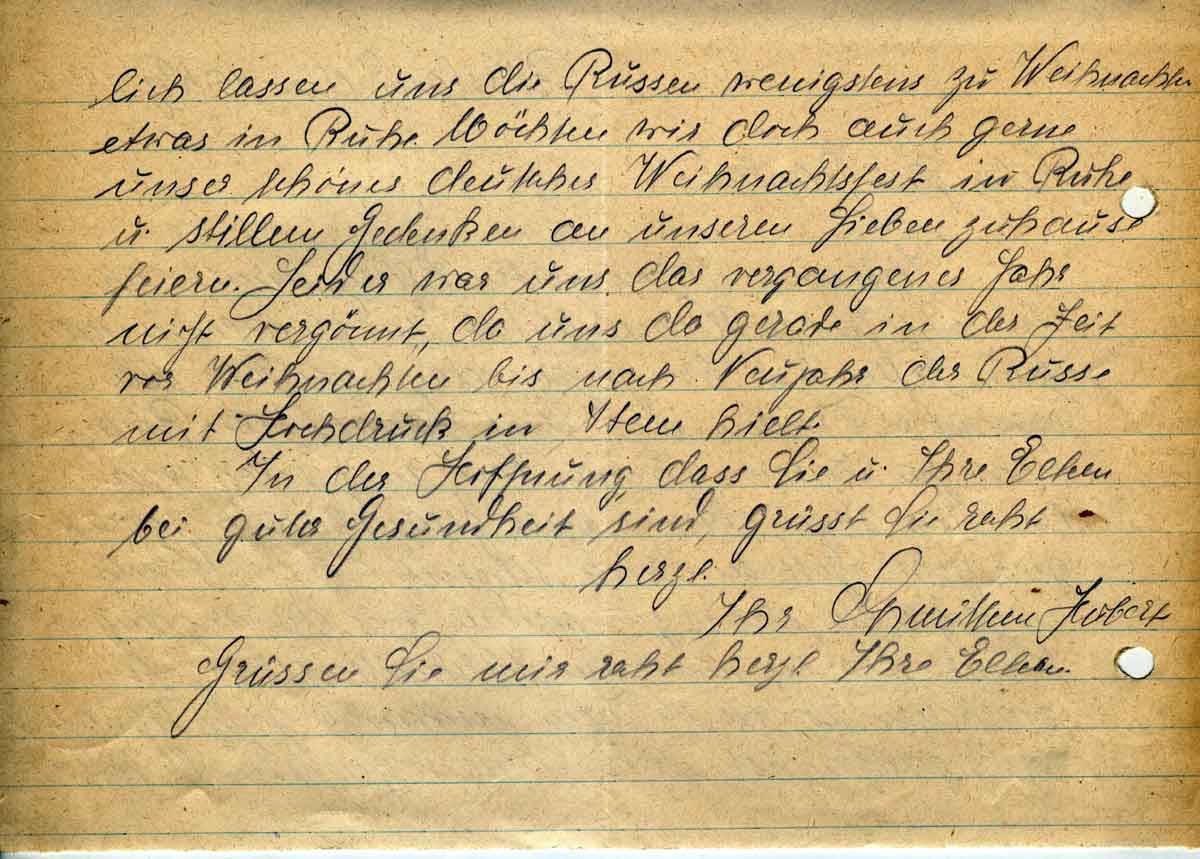 lich lassen uns die Russen wenigstens zu Weihnachten
etwas in Ruhe. Möchten wir doch auch gerne
unser schönes deutsches Weihnachtsfest in Ruhe
u. stillem Gedenken an unseren Lieben zuhause
feiern. Leider war uns das vergangenes Jahr
nicht vergönnt, da uns da gerade in der Zeit
vor Weihnachten bis nach Neujahr der Russe
mit Hochdruck in Atem hielt.
In der Hoffnung, dass Sie u. Ihre Eltern
bei guter Gesundheit sind, grüsst Sie recht
herzl.
Ihr Hubert
Grüssen Sie mir recht herzl. Ihre Eltern.